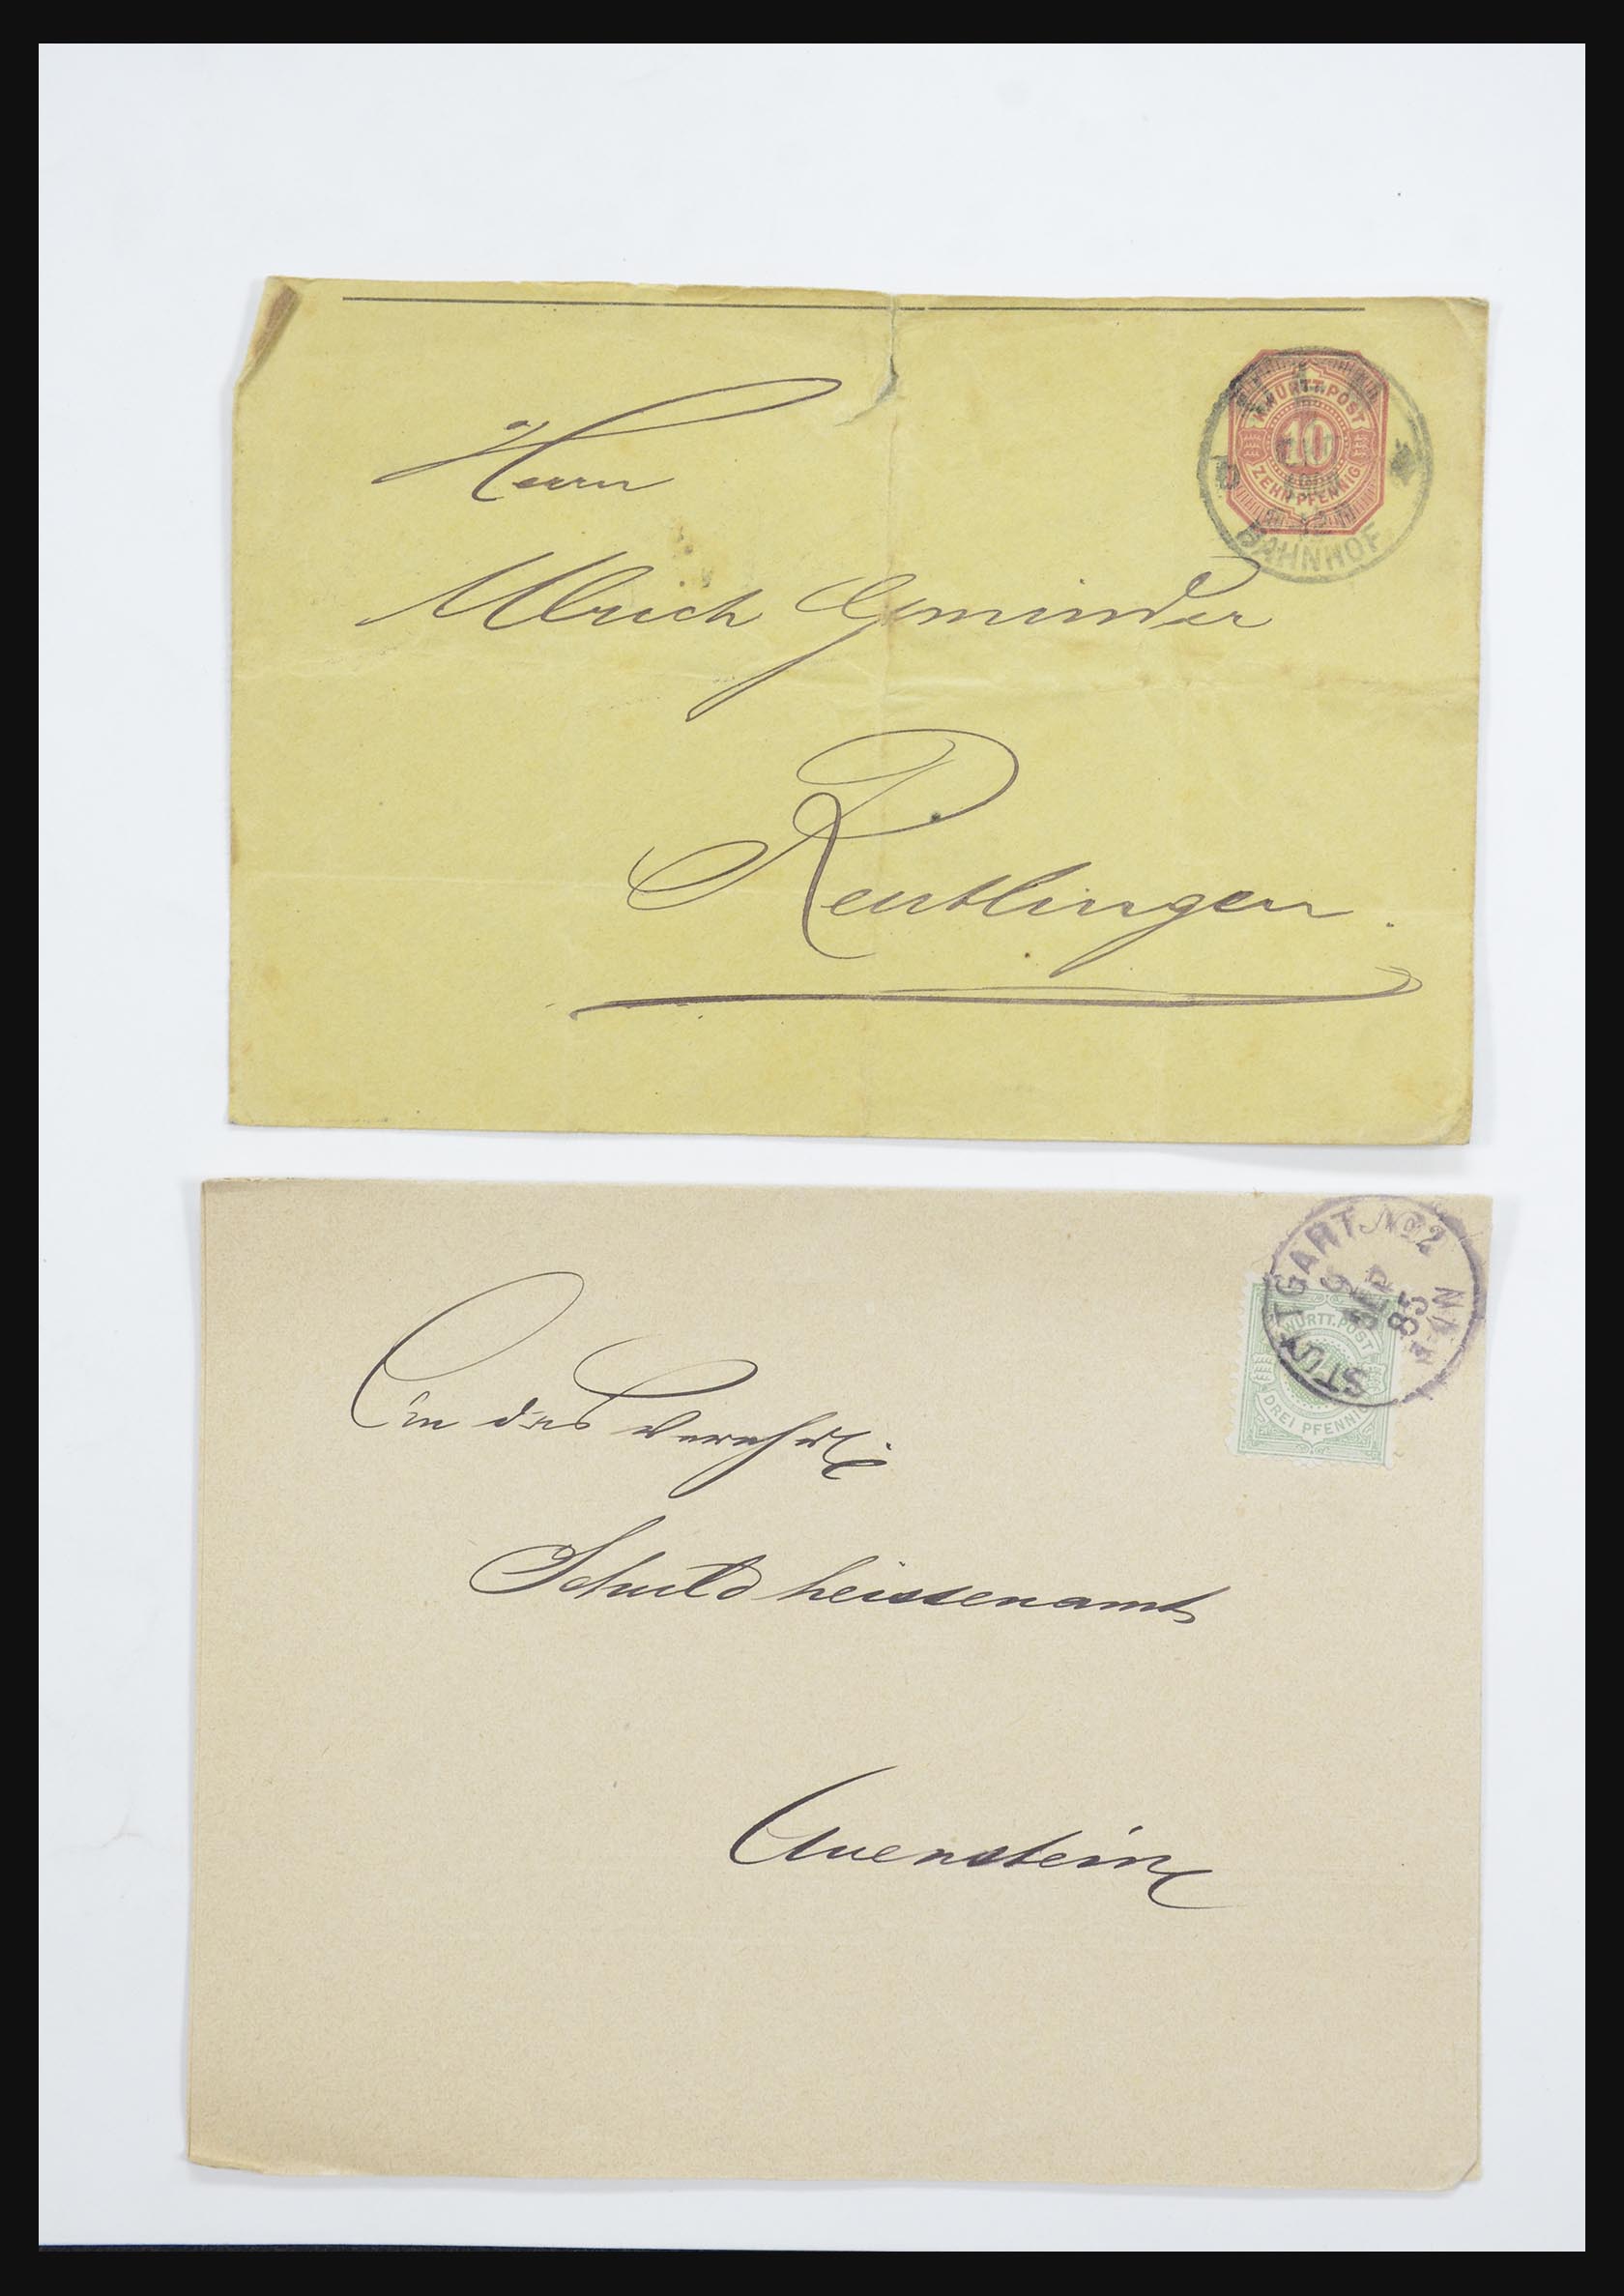 K. WÜRTT. POST
10
ZEHN PFENNIG
BAHNHOF
Herrn
Ulrich Gminder
Reutlingen.
STUTTGART. No 2
9
SEP
85
K. WÜRTT. POST
DREI PFENNIG
An das verehrl.
Schuldheissenamt
Auenstein